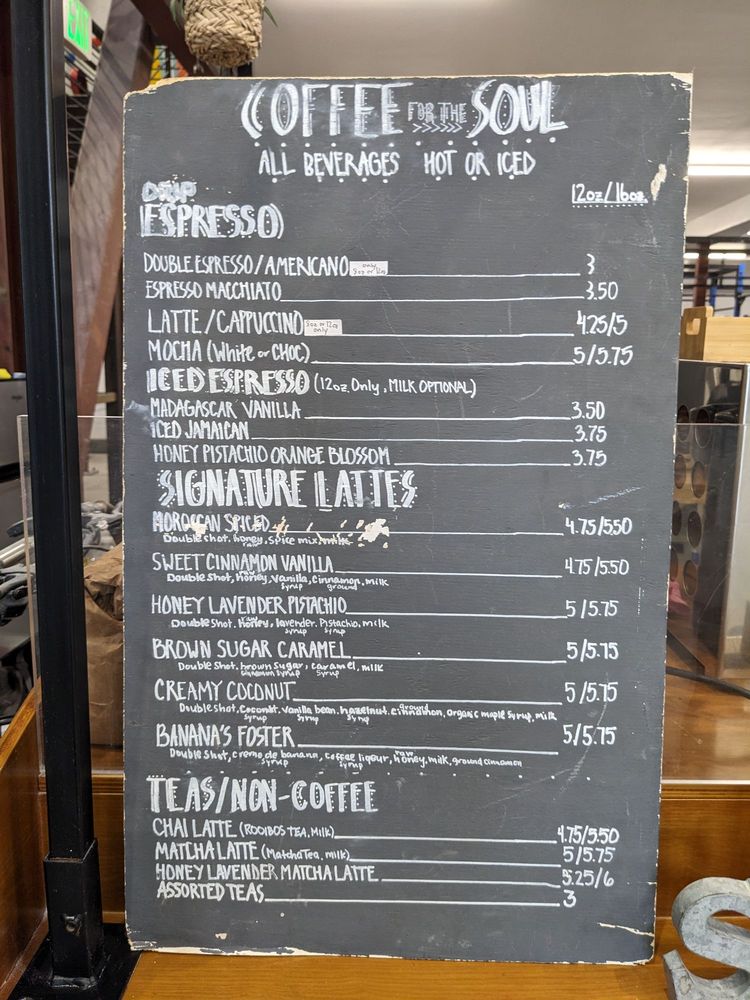 EXIT
COFFEE FOR THE SOUL
ALL BEVERAGES HOT OR ICED
DRIP
12oz/16oz
ESPRESSO
DOUBLE ESPRESSO/AMERICANO only 8oz or 12oz 3
ESPRESSO MACCHIATO 3.50
LATTE/CAPPUCCINO 8oz or 12oz only 4.25/5
MOCHA (White or CHOC) 5/5.75
ICED ESPRESSO (12oz Only, MILK OPTIONAL)
MADAGASCAR VANILLA 3.50
ICED JAMAICAN 3.75
HONEY PISTACHIO ORANGE BLOSSOM 3.75
SIGNATURE LATTES
MOROCCAN SPICED 4.75/5.50
Double shot, honey, spice mix, milk
raw
SWEET CINNAMON VANILLA 4.75/5.50
raw
Double shot, honey, Vanilla, cinnamon, milk
syrup ground
HONEY LAVENDER PISTACHIO 5/5.75
raw
Double shot, honey, lavender, Pistachio, milk
syrup syrup
BROWN SUGAR CARAMEL 5/5.75
Double shot, brown sugar, caramel, milk
cinnamon syrup syrup
CREAMY COCONUT 5/5.75
ground
Double shot, Coconut, vanilla bean, hazelnut, cinnamon, organic maple syrup, milk
syrup syrup syrup
BANANA'S FOSTER 5/5.75
raw
Double shot, creme de banana, coffee liqour, honey, milk, ground cinnamon
syrup syrup
TEAS/NON-COFFEE
CHAI LATTE (ROOIBOS TEA, Milk) 4.75/5.50
MATCHA LATTE (Matcha Tea, milk) 5/5.75
HONEY LAVENDER MATCHA LATTE 5.25/6
ASSORTED TEAS 3